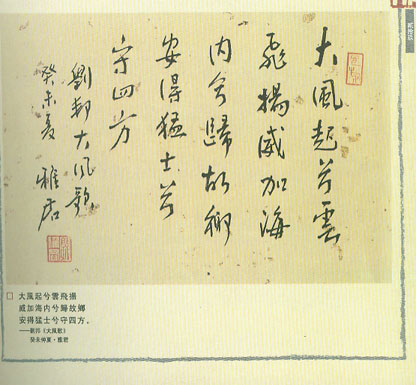 大風起兮雲
飛揚威加海
内兮歸故鄉
安得猛士兮
守四方
劉邦大風歌
癸未夏 雅君
大風起兮雲飛揚
威加海內兮歸故鄉
安得猛士兮守四方。
——劉邦《大風歌》
癸未仲夏·雅君